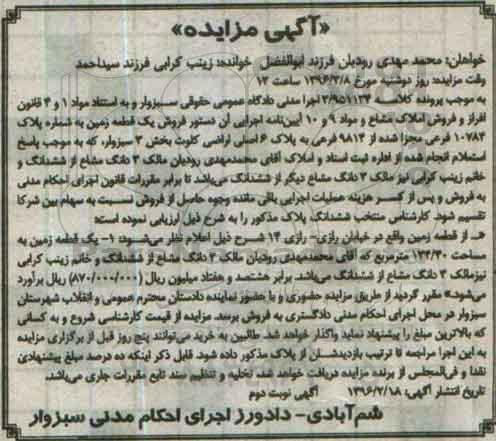 «آگهی مزایده»
خواهان: محمد مهدی رودیان فرزند ابوالفضل خوانده: زینب کرابی فرزند سیداحمد
وقت مزایده: روز دوشنبه مورخ ۱۳۹۶/۳/۸ ساعت ۱۲
به موجب پرونده کلاسه ۲/۹۵۱۱۳۴ اجرا مدنی دادگاه عمومی حقوقی سبزوار و به استناد مواد ۱ و ۴ قانون
افراز و فروش املاک مشاع و مواد ۹ و ۱۰ آیین‌نامه اجرایی آن دستور فروش یک قطعه زمین به شماره پلاک
۱۰۷۸۴ فرعی مجزا شده از ۹۸۱۴ فرعی به پلاک ۶ اصلی اراضی کلوت بخش ۳ سبزوار، که به موجب پاسخ
استعلام انجام شده از اداره ثبت اسناد و املاک آقای محمدمهدی رودیان مالک ۳ دانگ مشاع از ششدانگ و
خانم زینب کرابی نیز مالک ۳ دانگ مشاع دیگر از ششدانگ می‌باشد تا برابر مقررات قانون اجرای احکام مدنی
به فروش و پس از کسر هزینه عملیات اجرایی باقی مانده وجوه حاصل از فروش نسبت به سهام بین شرکا
تقسیم شود. کارشناس منتخب ششدانگ پلاک مذکور را به شرح ذیل ارزیابی نموده است:
از قطعه زمین واقع در خیابان رازی- رازی ۱۴ شرح ذیل اعلام نظر می‌شود: ۱- یک قطعه زمین به
مساحت ۱۲۴/۲۰ مترمربع که آقای محمدمهدی رودیان مالک ۳ دانگ مشاع از ششدانگ و خانم زینب کرابی
نیزمالک ۳ دانگ مشاع از ششدانگ می‌باشد. برابر هشتصد و هفتاد میلیون ریال (۸۷۰/۰۰۰/۰۰۰) ریال برآورد
می‌شود» مقرر گردید از طریق مزایده حضوری و با حضور نماینده دادستان محترم عمومی و انقلاب شهرستان
سبزوار در محل اجرای احکام مدنی دادگستری به فروش برسد. مزایده از قیمت کارشناسی شروع و به کسانی
که بالاترین مبلغ را پیشنهاد نماید واگذار خواهد شد. طالبین به خرید می‌توانند پنج روز قبل از برگزاری مزایده
به این اجرا مراجعه تا ترتیب بازدیدشان از پلاک مذکور داده شود. قابل ذکر اینکه ده درصد مبلغ پیشنهادی
نقدا و فی‌المجلس از برنده مزایده دریافت خواهد شد. تخلیه و تنظیم سند تابع مقررات جاری می‌باشد.
تاریخ انتشار آگهی: ۱۳۹۶/۲/۱۸ آگهی نوبت دوم
شم‌آبادی- دادورز اجرای احکام مدنی سبزوار